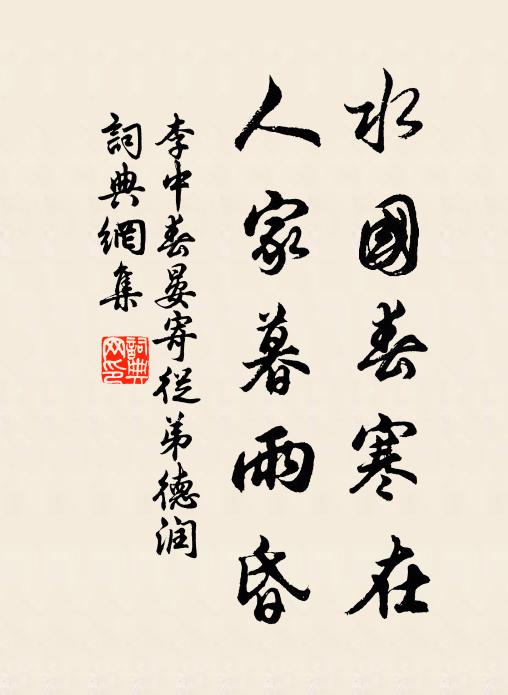 水國春寒在
人家暮雨昏
李中春晏寄從弟德润
詞典網集
詞典
网印